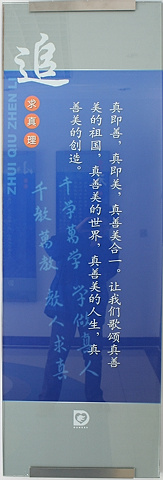 追
求真理
ZHUI QIU ZHEN LI
真即善，真即美，真善美合一。让我们歌颂真善
美的祖国，真善美的世界，真善美的人生，真
善美的创造。
千学万学 学做真人
千教万教 教人求真